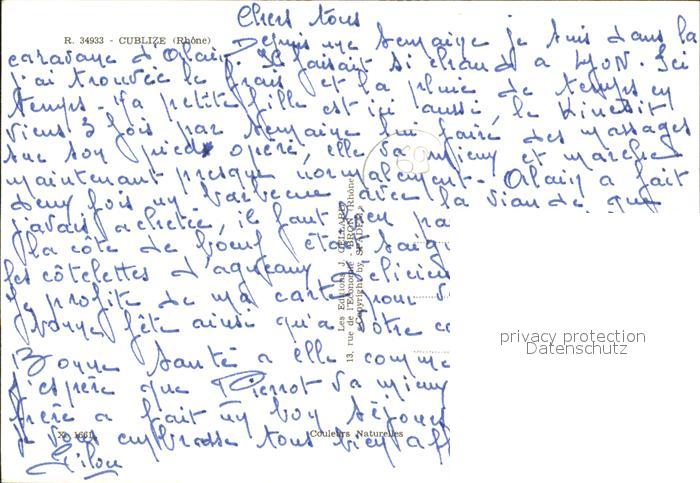 Chers tous
R. 34933 - CUBLIZE (Rhône)
Depuis une semaine je suis dans la
caravane d'Alain. Il faisait si chaud a LYON. Ici
j'ai trouvée le frais et la pluie de temps en
temps. Ma petite fille est ici aussi, le Kinésit
viens 3 fois par semaine lui faire des massages
sur son pied opéré, elle va mieux et marche
maintenant presque normalement. Alain a fait
deux fois un barbecue avec la viande que
j'avais achetée, il faut
la côte de boeuf était
les côtelettes d'agneau
Je profite de ma carte pour
bonne fête ainsi qu'a
Bonne santé a elle comme
J'espère que Pierrot va mieux
frère a fait un bon séjour
je vous embrasse tous bien aff
Gilou
X 1661
Couleurs Naturelles
Les Editions J. CELLARD
13, rue de l'Economie - BRON (Rhône)
Copyright by SPADEM
69
privacy protection
Datenschutz